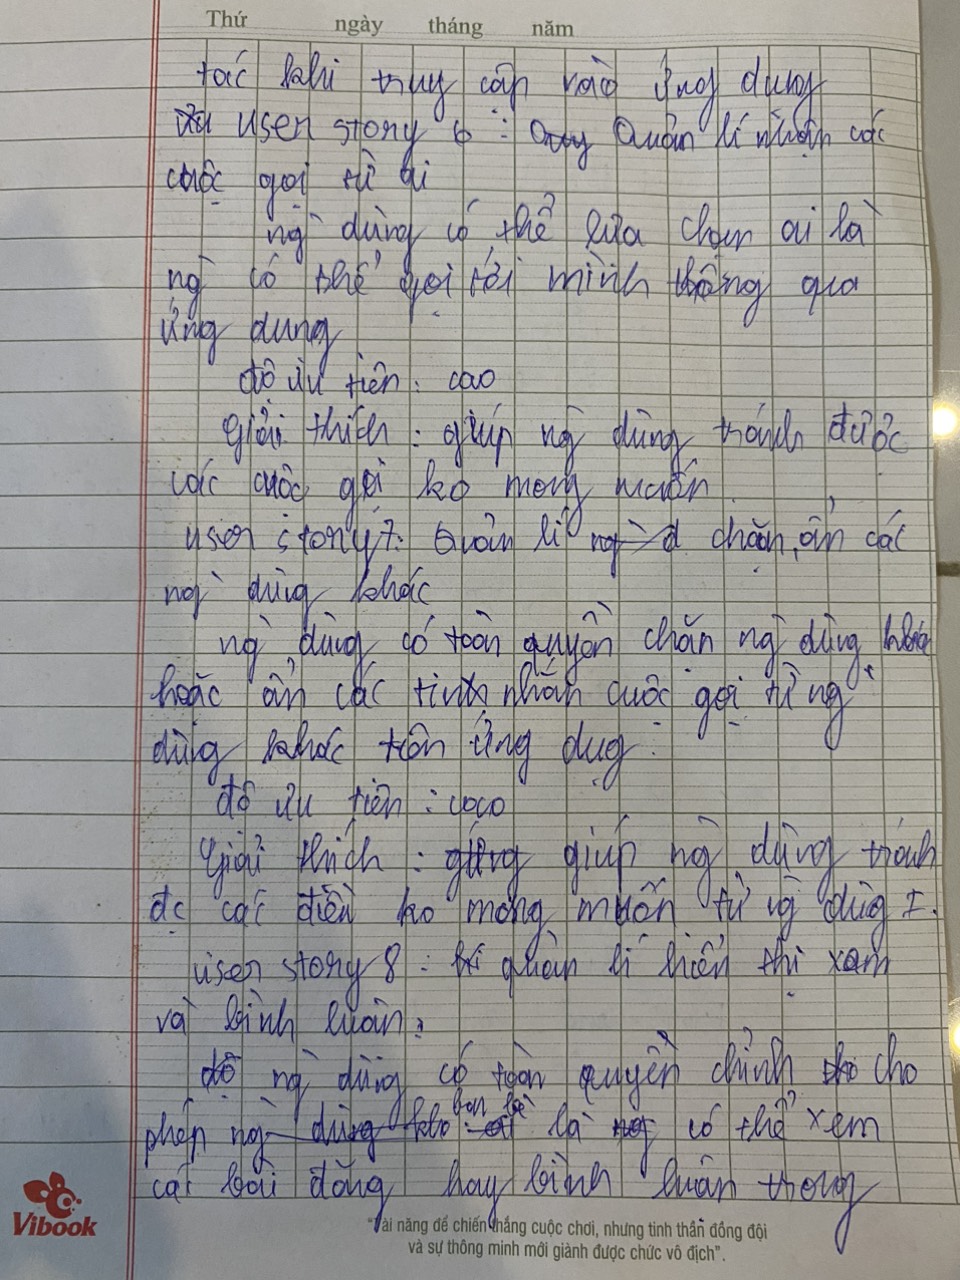 Thứ ngày tháng năm
tác khi truy cập vào ứng dụng
user story 6 : Quản lí nhận các
cuộc gọi từ ai
ng` dùng có thể lựa chọn ai là
ng` có thể gọi tới mình thông qua
ứng dung
độ ưu tiên : cao
Giải thích : giúp ng` dùng tránh được
các cuộc gọi ko mong muốn.
user story 7: Quản lí chặn, ẩn các
ng` dùng khác
ng` dùng có toàn quyền chặn ng` dùng khác
hoặc ẩn các tinh nhắn cuộc gọi từ ng`
dùng khác trên ứng dụg.
độ ưu tiên : cao
Giải thích : giúp ng` dùng tránh
đc các điều ko mong muốn từ ng` dùg
user story 8 : quản lí hiển thị xem
và bình luận:
ng` dùng có toàn quyền chỉnh cho
phép bạn bè là có thể xem
các bài đăng hay bình luận trong
Vibook
"Tài năng để chiến thắng cuộc chơi, nhưng tinh thần đồng đội
và sự thông minh mới giành được chức vô địch".